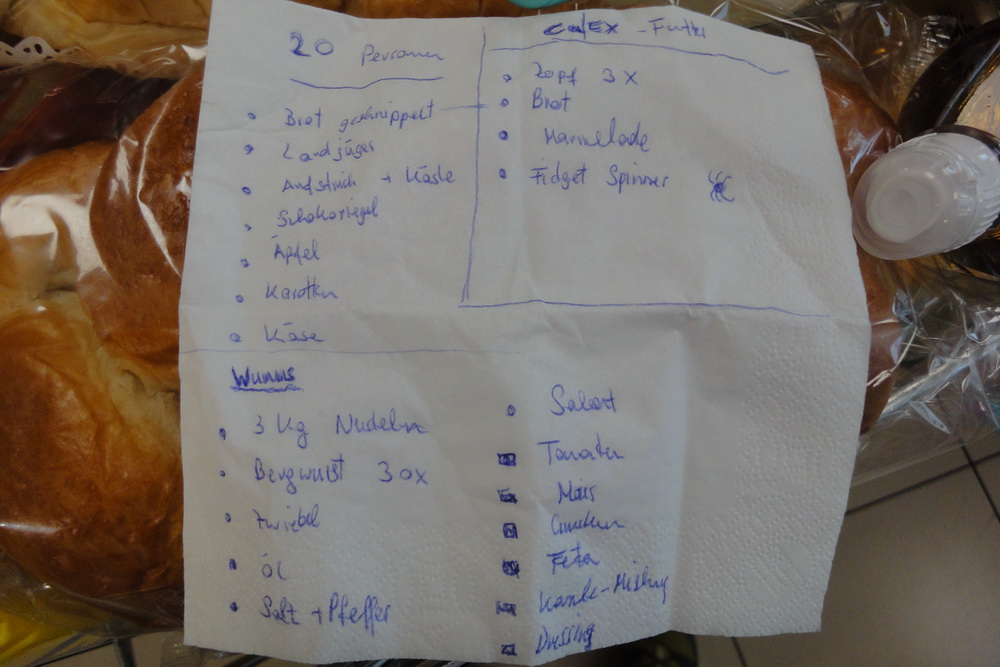 20 Personen
Brot geschnippelt
Landjäger
Aufstrich + Käste
Schokoriegel
Äpfel
Karotten
Käse
CalEX - Futter
Zopf 3 x
Brot
Marmelade
Fidget Spinner
Wumms
3 kg Nudeln
Bergwurst 30x
Zwiebel
Öl
Salz + Pfeffer
Salat
Tomaten
Mais
Gurken
Feta
Dressing